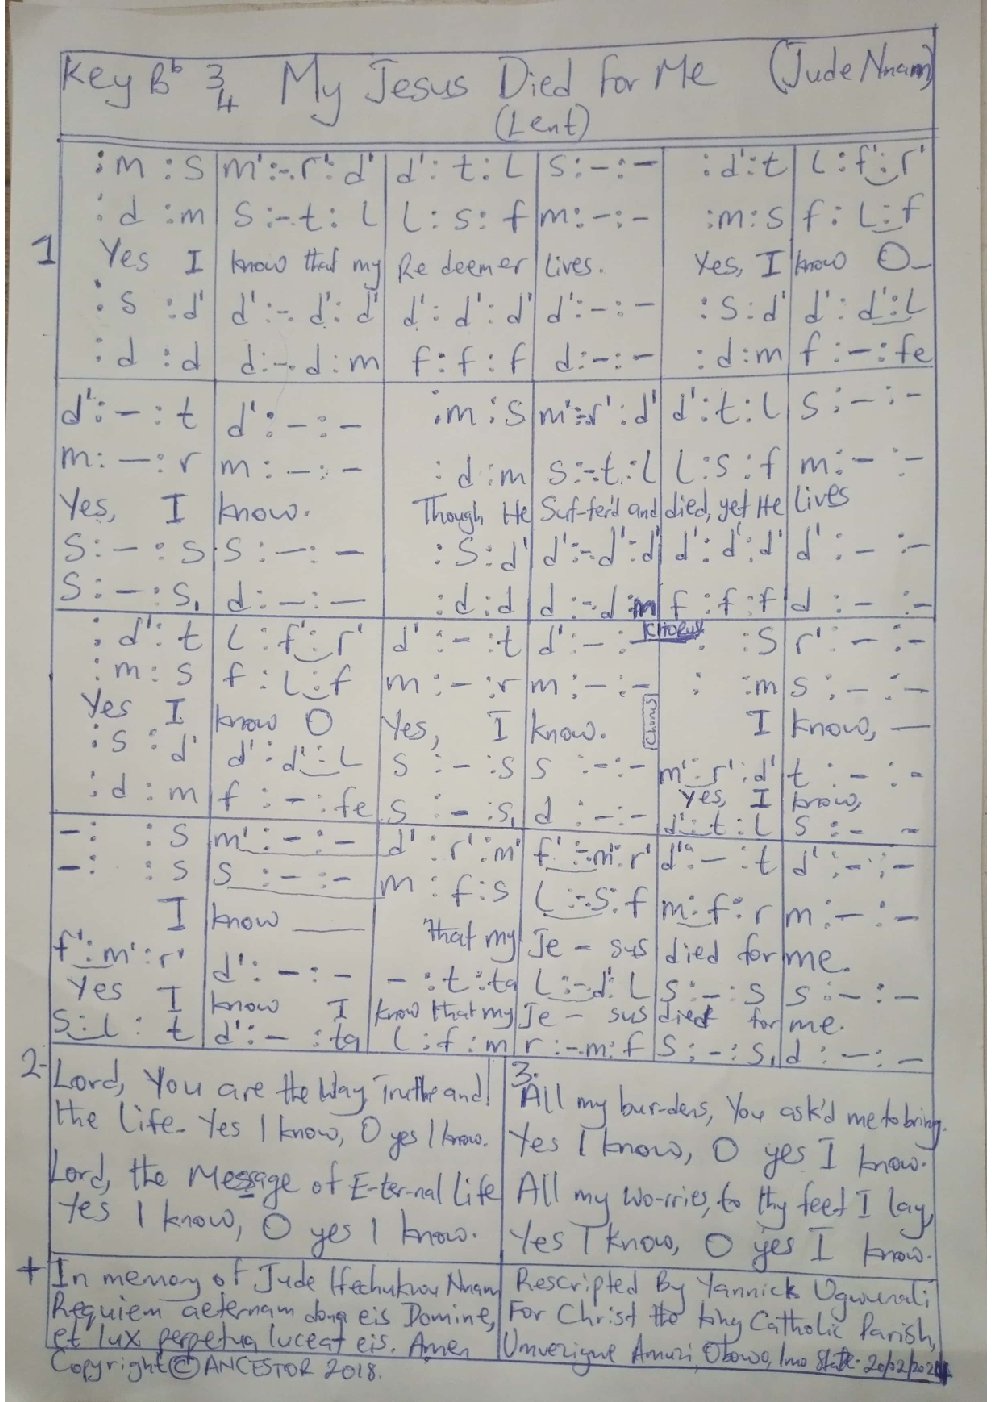 Key Bb 3/4 My Jesus Died for Me (Jude Nnam)
(Lent)
:m :s | m':-.r':d' | d':t:l | s:-:- | :d':t | l:f':r'
:d :m | s:-t:l | l:s:f | m:-:- | :m:s | f:l:f
1 Yes I know that my Re deemer lives. Yes, I know O_
:s :d' | d':-.d':d' | d':d':d' | d':-:- | :s:d' | d':d':l
:d :d | d:-.d:m | f:f:f | d:-:- | :d:m | f:-:fe
d':-:t | d':-:- | :m:s | m':-r':d' | d':t:l | s:-:-
m:-:r | m:-:- | :d:m | s:-t.:l | l:s:f | m:-:-
Yes, I know. Though He Suf-fer'd and died, yet He lives
s:-:s | s:-:- | :s:d' | d':-d':d' | d':d':d' | d':-:-
s:-:s, | d:-:- | :d:d | d:-d:m | f:f:f | d:-:-
:d':t | l:f':r' | d':-:t | d':-:- | Chorus : :s | r':-:-
:m:s | f:l:f | m:-:r | m:-:- | : :m | s:-:-
Yes I know O Yes, I know. Chorus I know, —
:s:d' | d':d':l | s:-:s | s:-:- | m':r':d' | t:-:-
Yes, I know,
:d:m | f:-:fe | s:-:s, | d:-:- | d':t:l | s:- -
-: :s | m':-:- | d':r':m' | f':-.m':r' | d':-:t | d':-:-
-: :s | s:-:- | m:f:s | l:-s:f | m:f:r | m:-:-
I know ___ that my Je - sus died for me.
f':m':r' | d':-:- | -:t:ta | l:-d':l | s:-:s | s:-:-
Yes I know I know that my Je - sus died for me.
s:l:t | d':-:ta | l:f:m | r:-m:f | s:-:s, | d:-:-
2- Lord, You are the Way, Truth and
the Life- Yes I know, O yes I know.
Lord, the Message of E-ter-nal Life
Yes I know, O yes I know.
3.
All my bur-dens, You ask'd me to bring.
Yes I know, O yes I know.
All my wo-rries, to thy feet I lay,
Yes I know, O yes I know.
+ In memory of Jude Ifechukwu Nnam
Requiem aeternam dona eis Domine,
et lux perpetua luceat eis. Amen
Copyright © ANCESTOR 2018.
Rescripted By Yannick
For Christ the king Catholic Parish,
Amuzi, Obowo, Imo State-